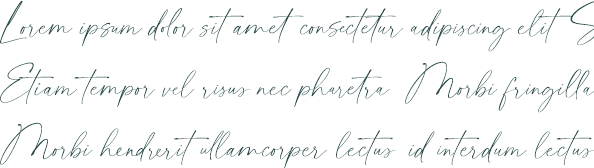 Lorem ipsum dolor sit amet consectetur adipiscing elit S
Etiam tempor vel risus nec pharetra Morbi fringilla
Morbi hendrerit ullamcorper lectus id interdum lectus